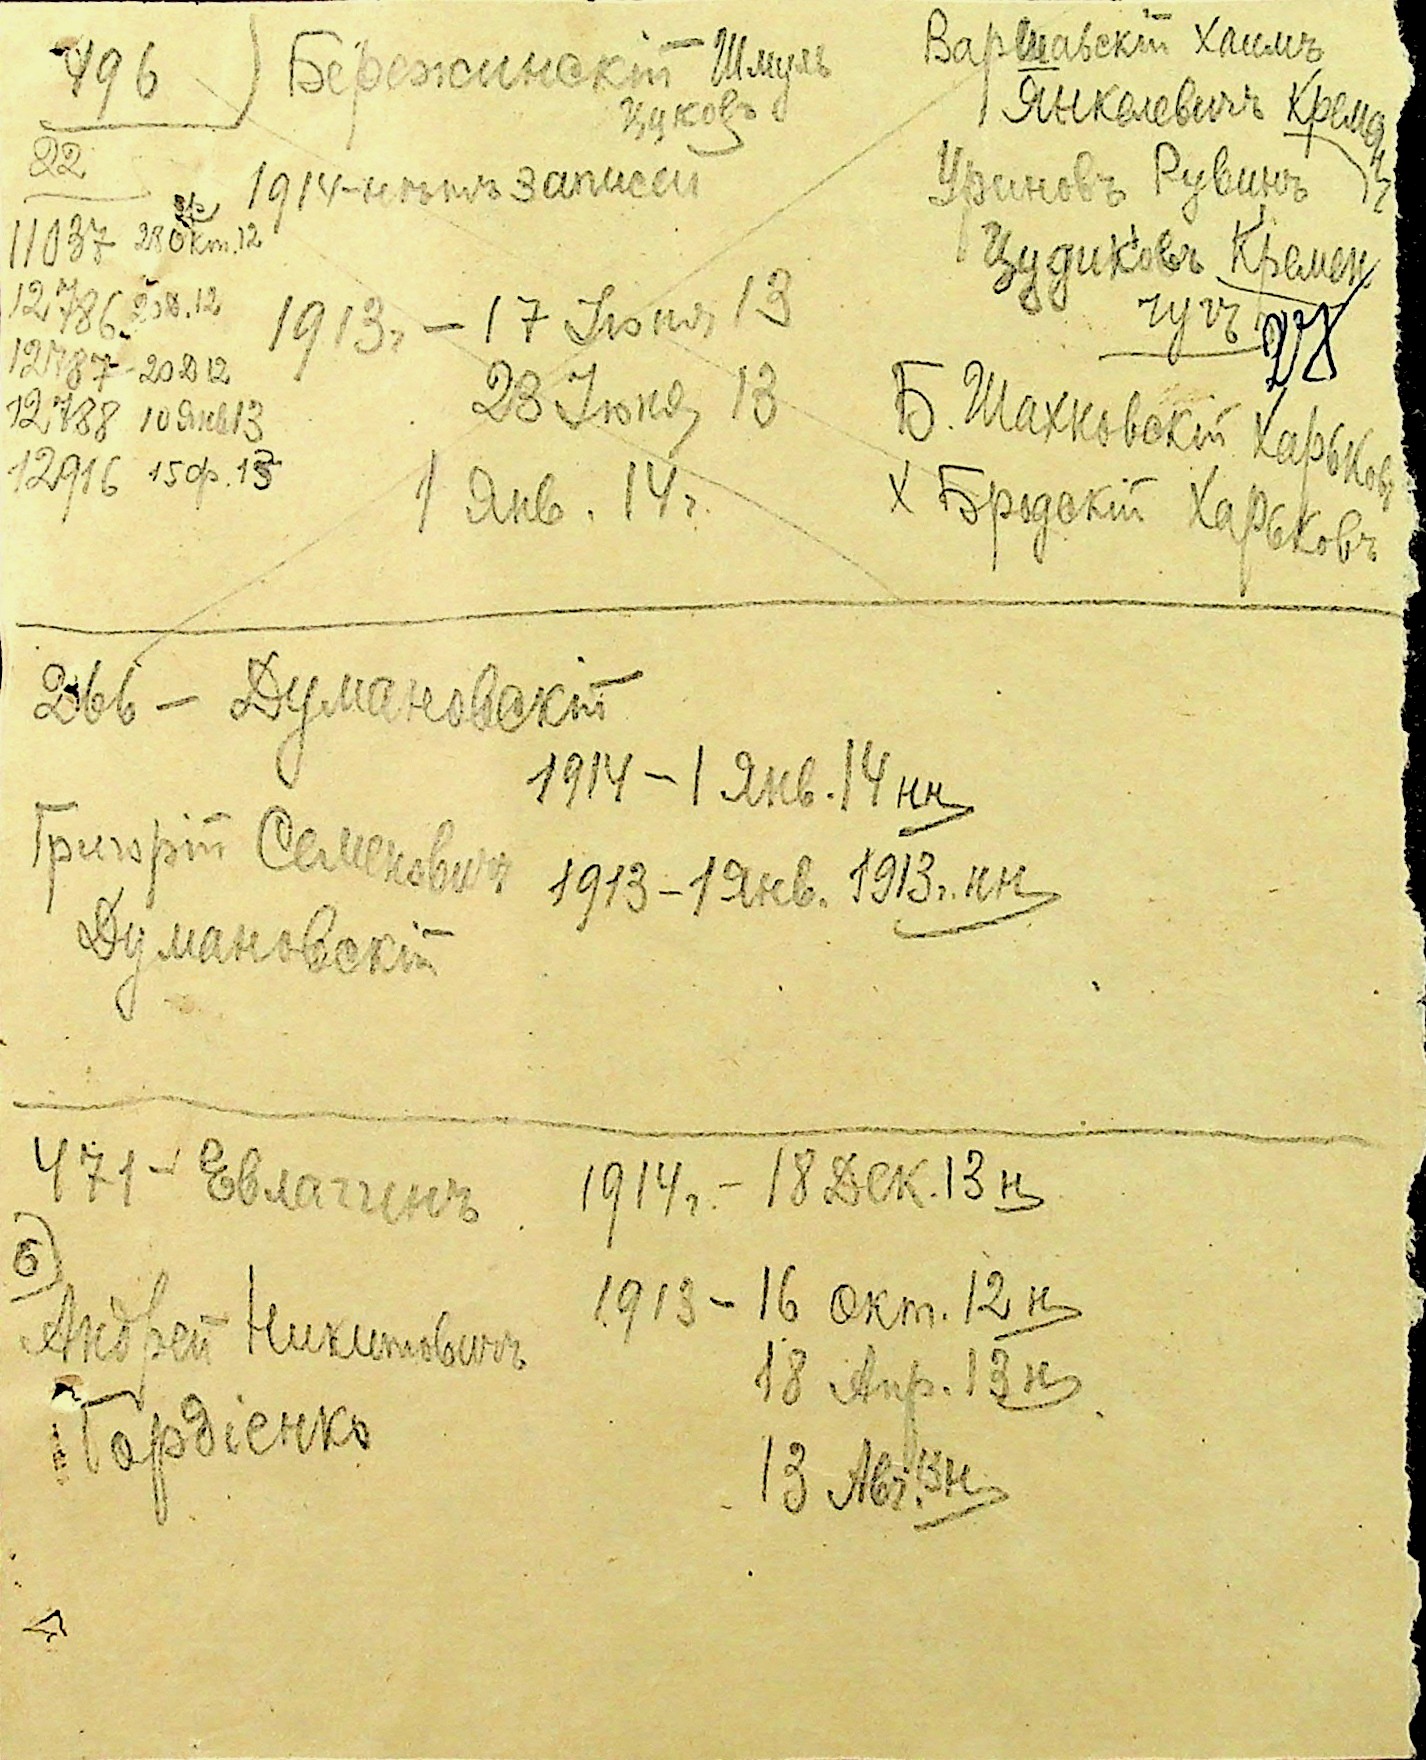 496) Бережинскій Шмуль
Цуковъ
22
1914-нѣтъ записи
11037 28 Окт. 12
12786 20 Д. 12
12787 - 20 Д 12
12788 10 Янв 13
12916 15 ф. 13
1913г - 17 Іюня 13
28 Іюня 13
1 Янв. 14г.
Варшавскій Хаимъ
Янкелевичъ Кремен
Уриновъ Рувинъ
Цудиковъ Кремен
чугъ
Б. Шахновскій Харьковъ
Х Бродскій Харьковъ
266 - Думановскій
1914 - 1 Янв. 14 нн
Григорій Семеновичъ
Думановскій
1913 - 1 Янв. 1913г. нн
471 - Евлагинъ
1914г. - 18 Дек. 13 н
б)
Андрей Никитовичъ
Гордіенко
1913 - 16 Окт. 12 н
18 Апр. 13 н
13 Авг. 13 н